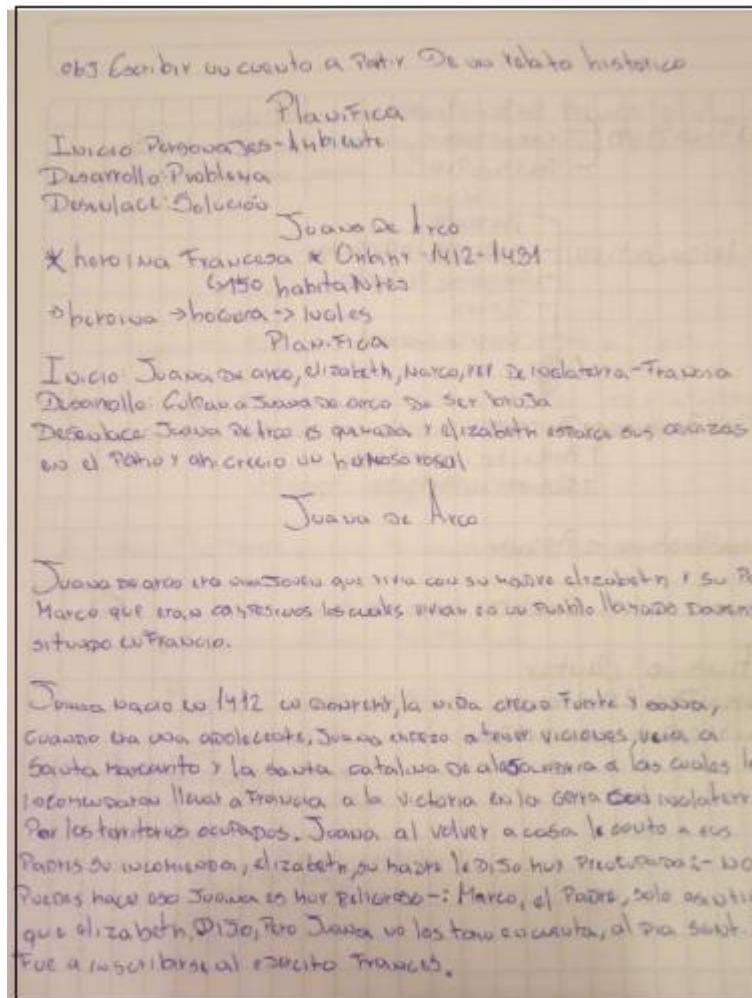 obj Escribir un cuento a Partir De un relato historico
Planifica
Inicio: Personajes-Ambiente
Desarrollo: Problema
Desenlace: Solución
Juana De Arco
* heroina Francesa * 1412-1431
150 habitantes
heroina → hoguera →
Planifica
Inicio: Juana De arco, elizabeth, Marco, rey De inglaterra-Francia
Desarrollo: Culpan a Juana De arco De Ser bruja
Desenlace: Juana De Arco es quemada y elizabeth esparce sus cenizas
en el Patio y ahi crecio un hermoso rosal
Juana De Arco
Juana De arco era una Joven que vivia con su madre elizabeth y su
Marco que eran campesinos los cuales vivian en un Pueblo llamado
situado en Francia.
Juana nacio en 1412 en la niña crecio Fuerte y sana,
Cuando era una adolecente, Juana empezo a tener viciones, veia a
Santa y la santa catalina De a las cuales
llevar a Francia a la victoria en la gerra con
Por los territorios ocupados. Juana al volver a casa le conto a sus
Padres su elizabeth, su madre le Dijo muy Preocupada:- No
Puedes hacer eso Juana es muy Peligroso-: Marco, el Padre, solo
que elizabeth, Dijo, Pero Juana no los tomo en cuenta, al Dia
Fue a inscribirse al ejercito Frances.